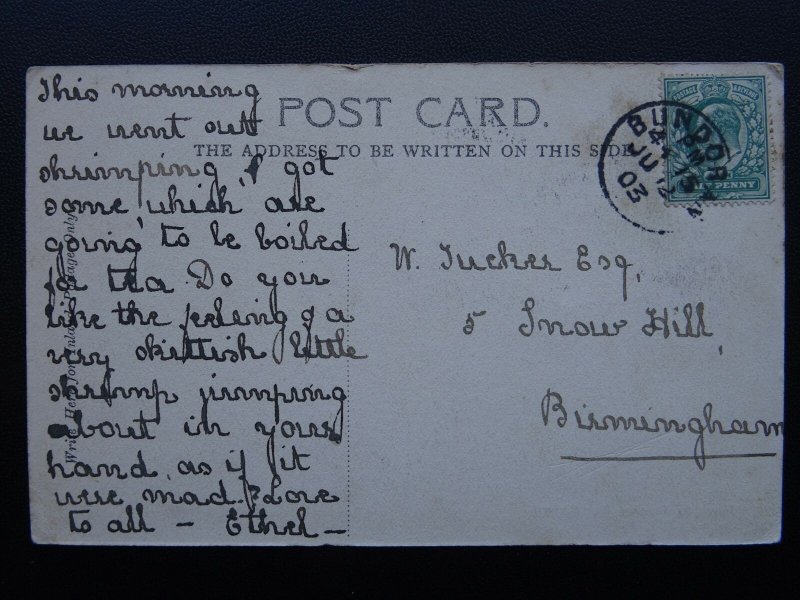 This morning
we went out
shrimping, I got
some, which are
going to be boiled
for tea. Do you
like the feeling of a
very skittish little
shrimp jumping
about in your
hand, as if it
were mad? Love
to all – Ethel –
POST CARD.
THE ADDRESS TO BE WRITTEN ON THIS SIDE
Write Here for Inland Postage Only
BUNDORAN
JU 12
03
W. Tucker Esq,
5 Snow Hill,
Birmingham